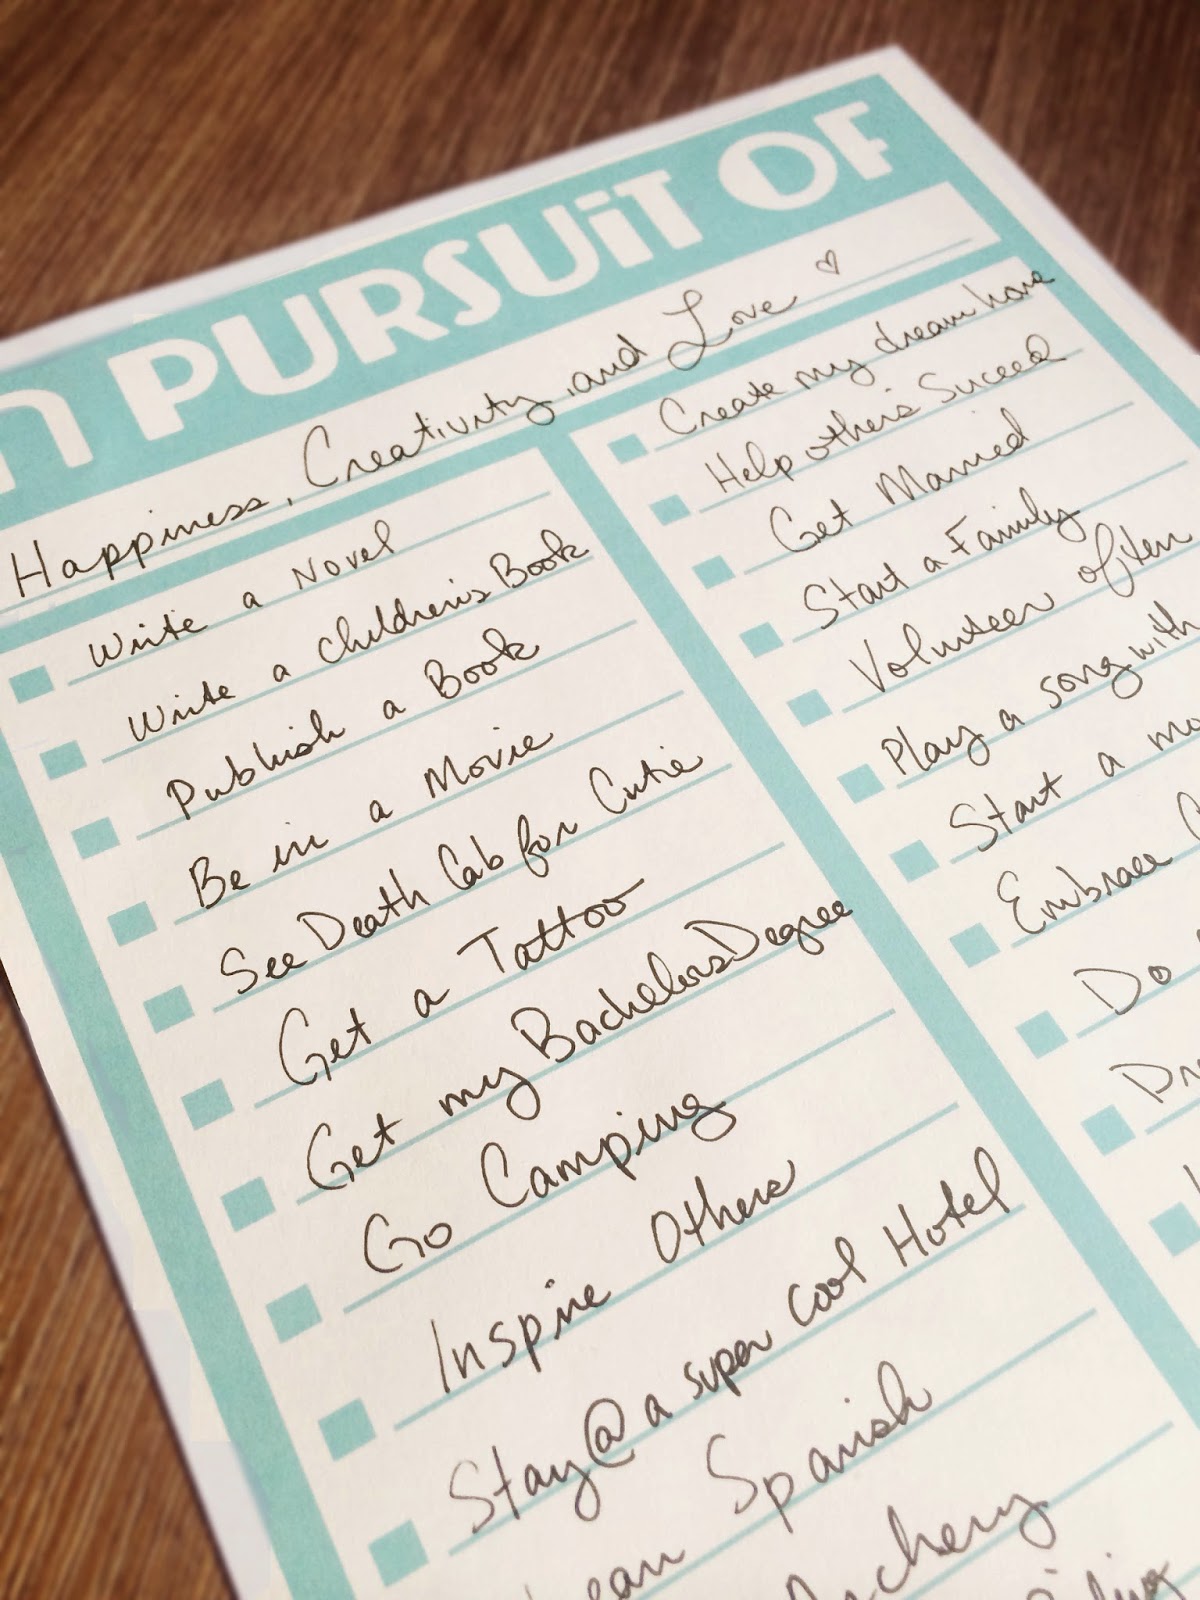 PURSUiT OF
Happiness, Creativity, and Love ♡
Write a Novel
Write a children's Book
Publish a Book
Be in a Movie
See Death Cab for Cutie
Get a Tattoo
Get my Bachelors Degree
Go Camping
Inspire Others
Stay @ a super cool Hotel
Spanish
Create my dream home
Help other's Suceed
Get Married
Start a Family
Volunteer often
Play a song with
Start a
Embrace
Do